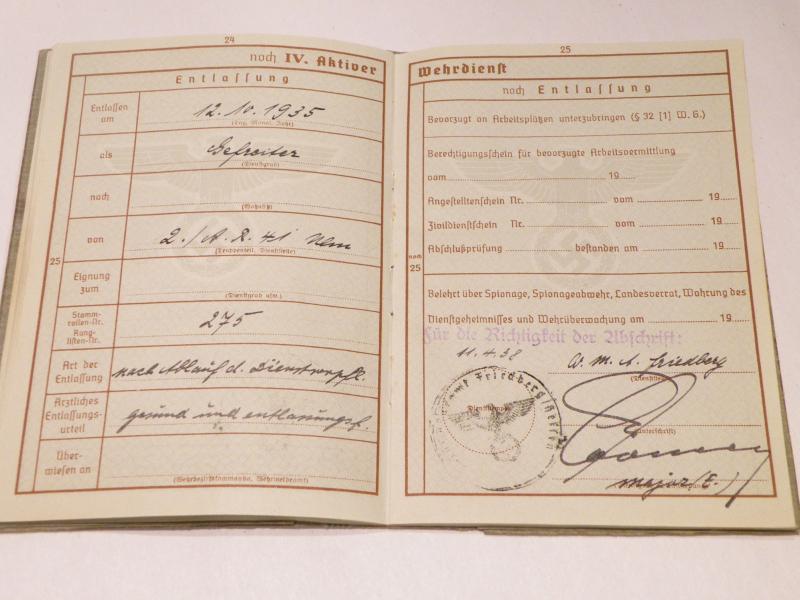 24
noch IV. Aktiver
Entlassung
Entlassen am
12.10.1935
(Tag, Monat, Jahr)
als
Gefreiter
(Dienstgrad)
nach
(Wohnsitz)
von
2./A.R. 41 Ulm
(Truppenteil, Dienststelle)
25
Eignung zum
(Dienstgrad usw.)
Stamm-
rollen-Nr.
Rang-
listen-Nr.
275
Art der
Entlassung
nach Ablauf d. Dienstverpfl.
Ärztliches
Entlassungs-
urteil
gesund und entlassungsf.
Über-
wiesen an
(Wehrbezirkskommando, Wehrmeldeamt)
25
Wehrdienst
noch Entlassung
Bevorzugt an Arbeitsplätzen unterzubringen (§ 32 [1] W. G.)
Berechtigungsschein für bevorzugte Arbeitsvermittlung
vom 19
Angestelltenschein Nr. vom 19
Zivildienstschein Nr. vom 19
Abschlußprüfung bestanden am 19
noch
25
Belehrt über Spionage, Spionageabwehr, Landesverrat, Wahrung des
Dienstgeheimnisses und Wehrüberwachung am 19
Für die Richtigkeit der Abschrift:
11.4.38
W. M. A. Friedberg
(Dienststelle)
Friedberg (Hessen)
(Dienststempel)
(Unterschrift)
Major (E.)